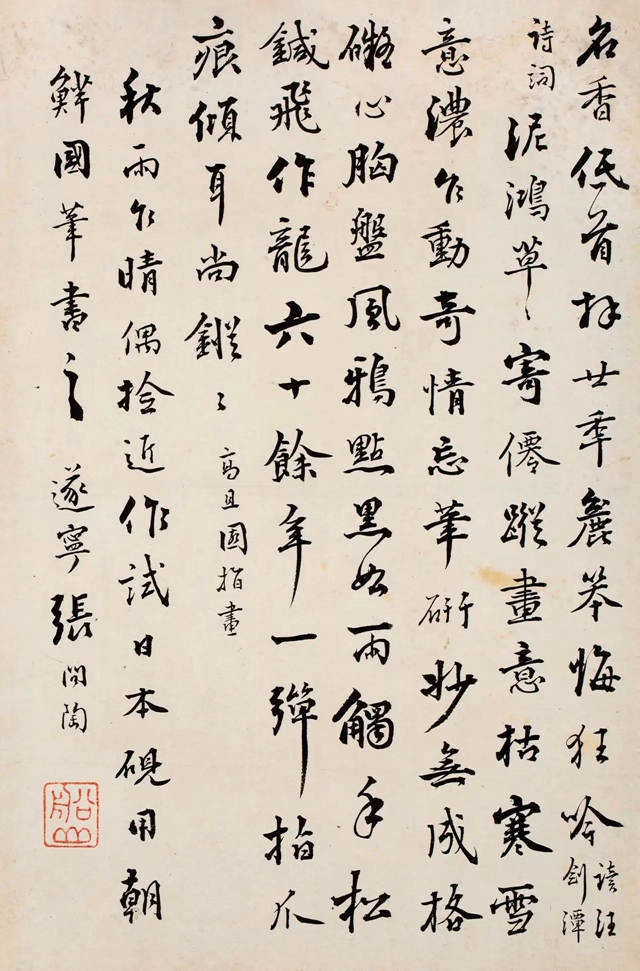 名香低首拜廿年麄笨悔狂吟 讀汪劍潭
詩詞 泥鴻草〻寄僊蹤畫意枯寒雪
意濃乍動奇情忘筆研妙無成格
礙心胸盤風鴉點黑如雨觸手松
鍼飛作龍六十餘年一彈指爪
痕傾耳尚鏦〻 高且園指畫
秋雨乍晴偶撿近作試日本硯用朝
鮮國筆書之 遂寧張問陶
船山